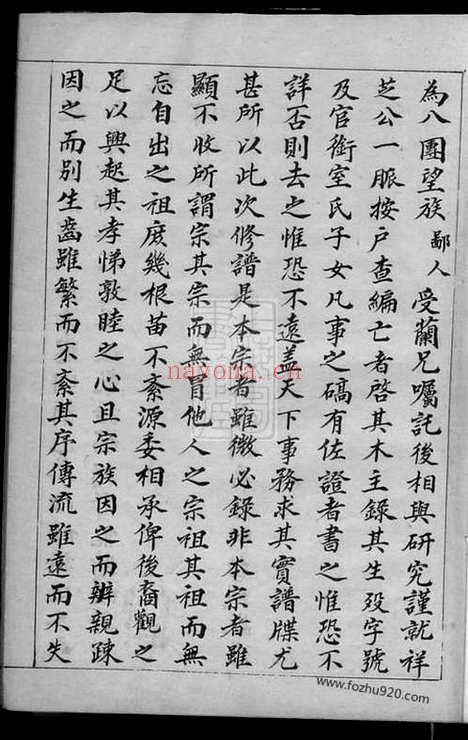 為八團望族鄙人 受蘭兄囑託後相與研究謹就祥
芝公一脈按户查編亡者啓其木主錄其生殁字號
及官銜室氏子女凡事之碻有佐證者書之惟恐不
詳否則去之惟恐不遠盖天下事務求其實譜牒尤
甚所以此次修譜是本宗者雖微必錄非本宗者雖
顯不收所謂宗其宗而無冒他人之宗祖其祖而無
忘自出之祖庶幾根苗不紊源委相承俾後裔觀之
足以興起其孝悌敦睦之心且宗族因之而辨親疎
因之而别生齒雖繁而不紊其序傳流雖遠而不失
nayona.cn
www.fozhu920.com